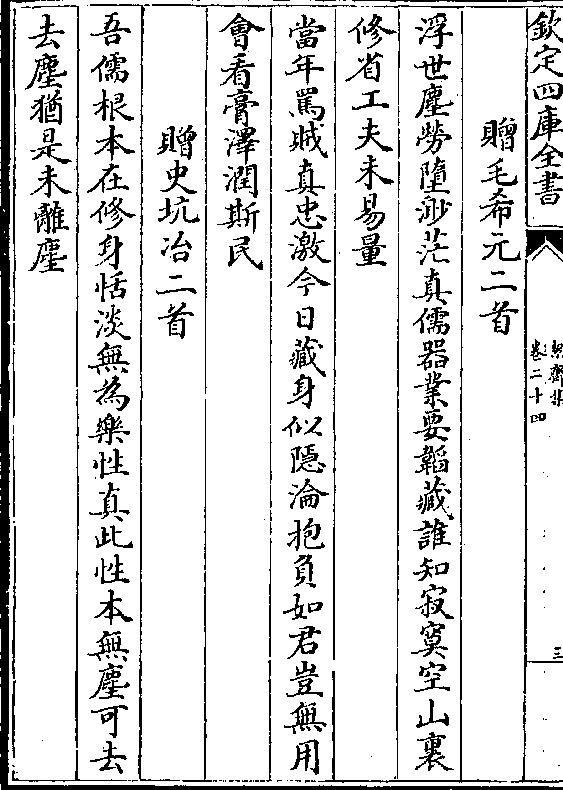 欽定四庫全書
絜齋集
卷二十四
三
贈毛希元二首
浮世塵勞墮渺茫真儒器業要韜藏誰知寂寞空山裏
修省工夫未易量
當年罵賊真忠激今日藏身似隱淪抱負如君豈無用
會看膏澤潤斯民
贈史坑冶二首
吾儒根本在修身恬淡無為樂性真此性本無塵可去
去塵猶是未離塵